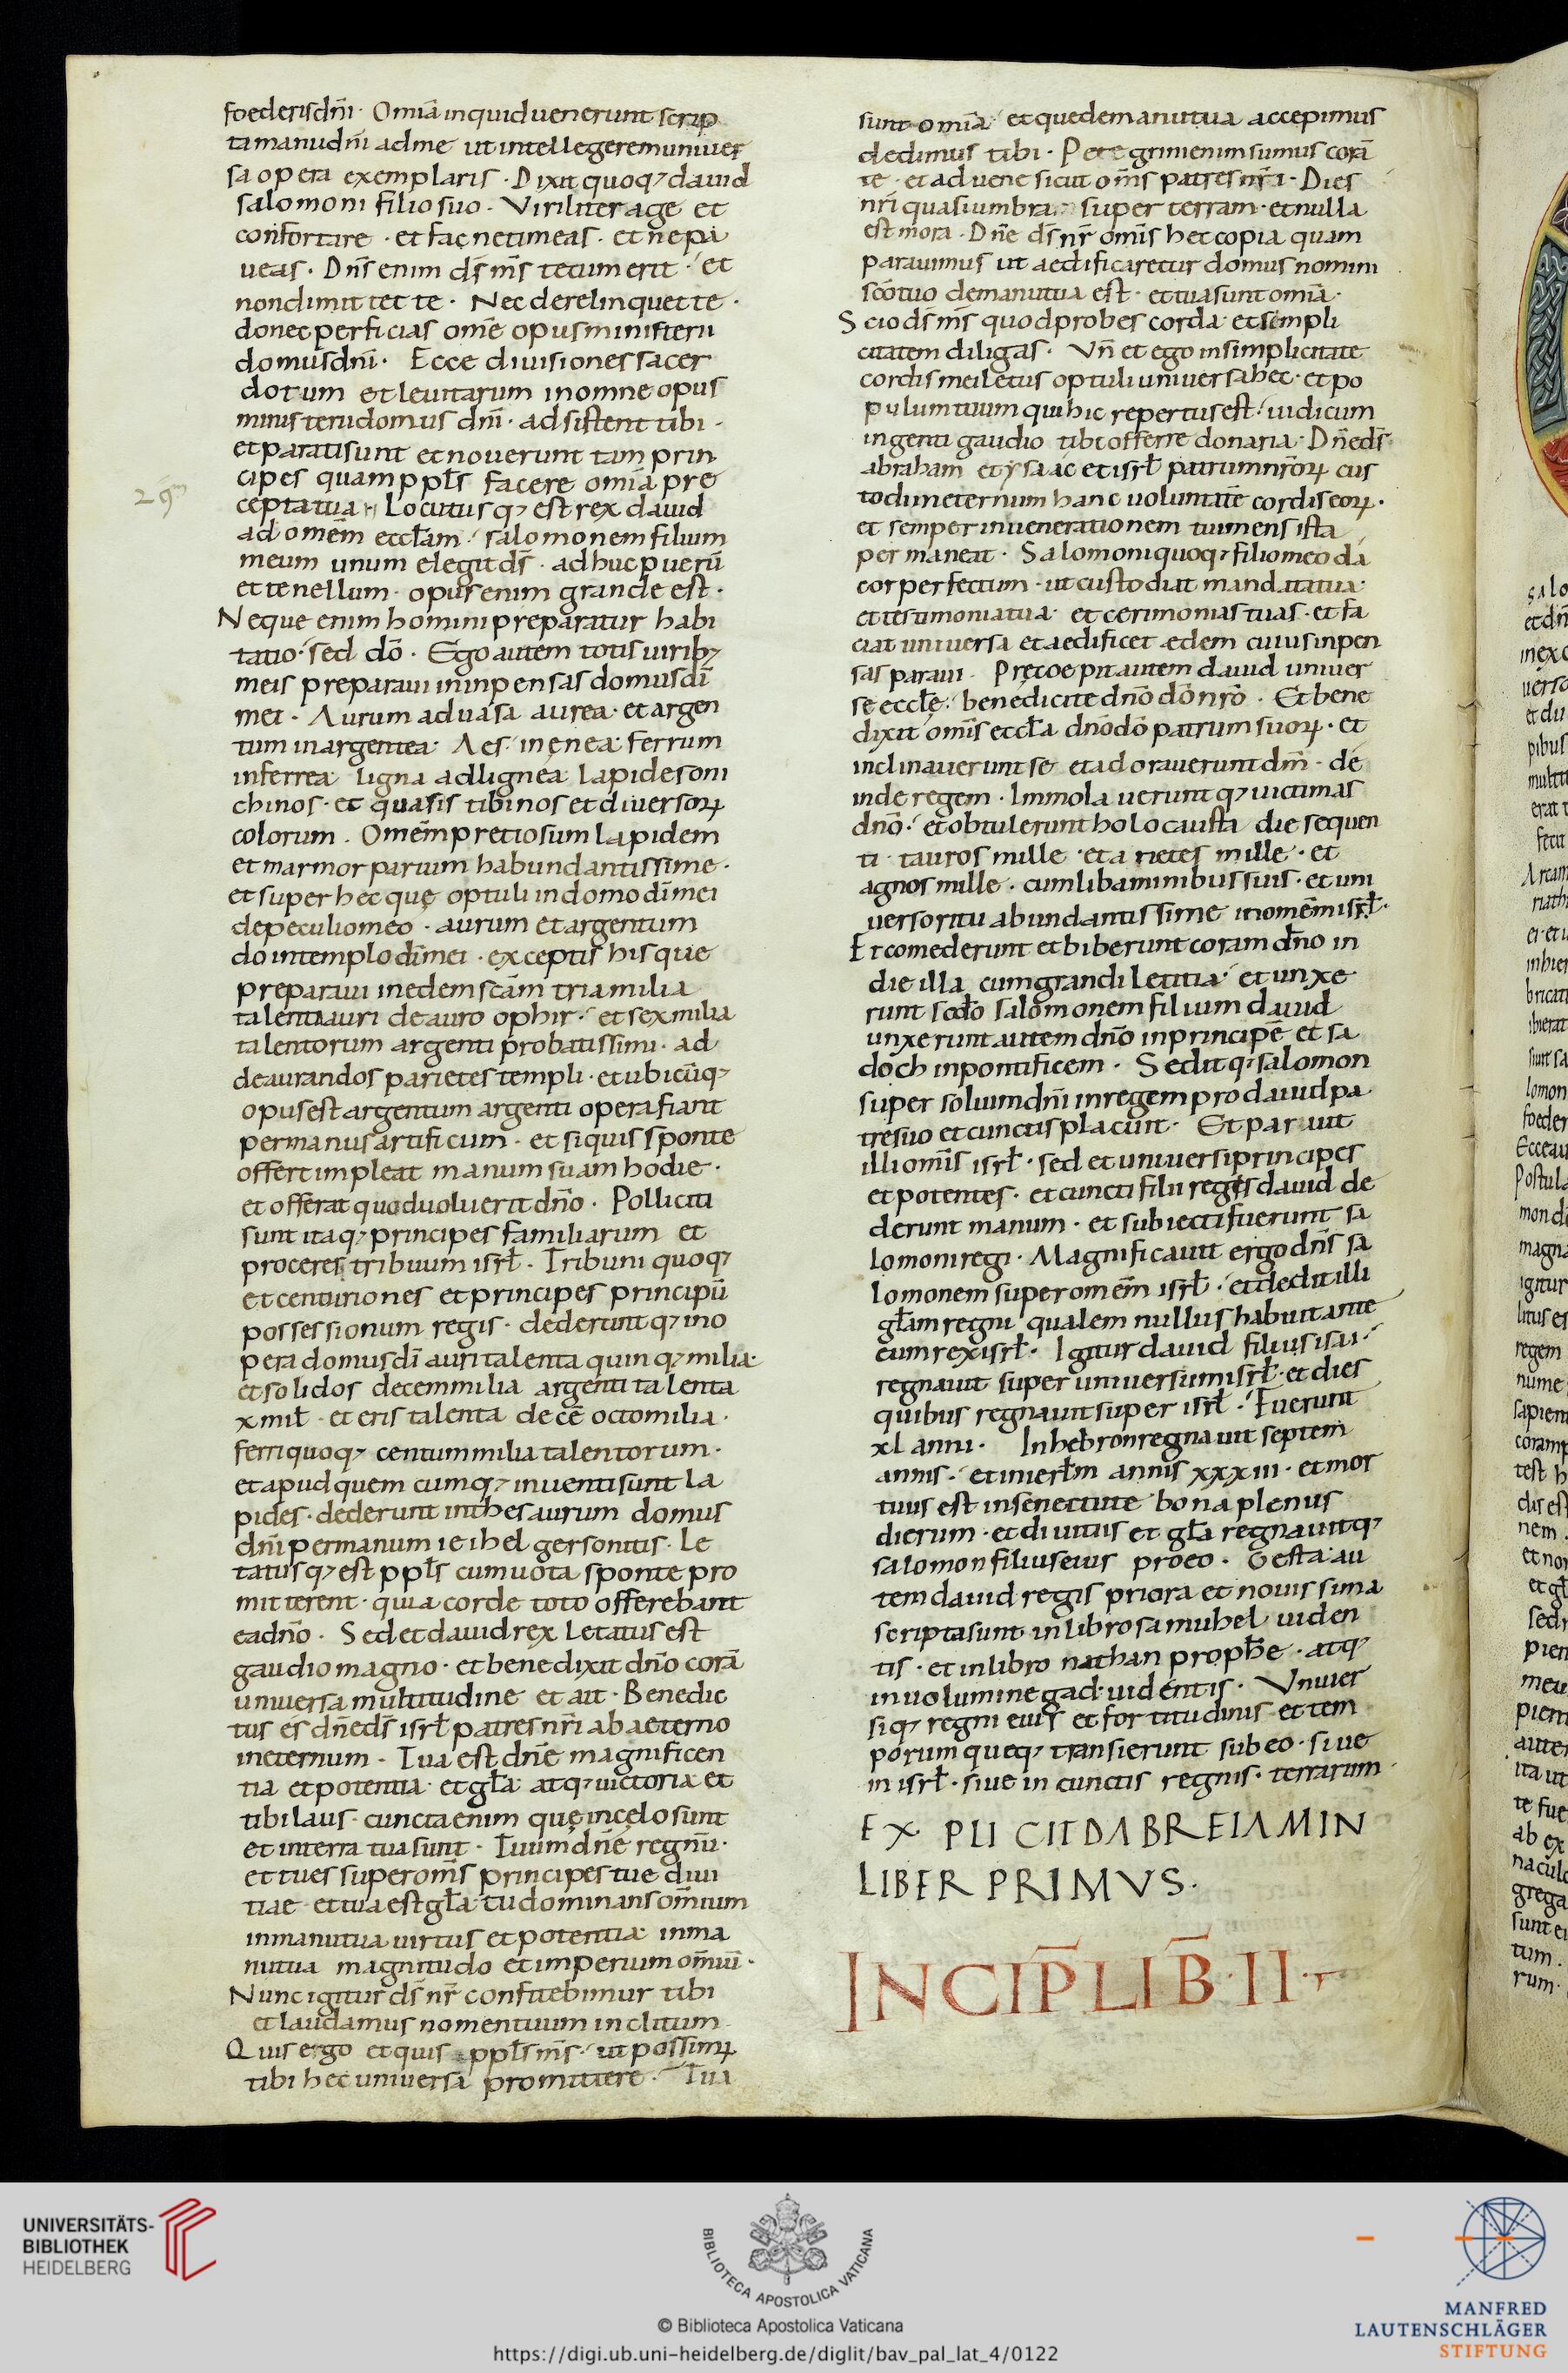 foederis dn̄i · Omīa inquid uenerunt scrip
ta manu dn̄i ad me ut intellegerem uniuer
sa opera exemplaris · Dixit quoq; dauid
salomoni filio suo · Viriliter age et
confortare · et fac ne timeas · et ne pa
ueas · Dn̄s enim ds̄ m̄s tecum erit · et
non dimittet te · Nec derelinquet te ·
donec perficias om̄e opus ministerii
domus dn̄i · Ecce diuisiones sacer
dotum et leuitarum in omne opus
ministerii domus dn̄i · adsistent tibi ·
et parati sunt et nouerunt tam prin
cipes quam ppl̄s facere omīa pre
cepta tua · Locutusq; est rex dauid
ad omēm eccl̄am · salomonem filium
meum unum elegit ds̄ · adhuc puerū
et tenellum · opus enim grande est ·
Neque enim homini preparatur habi
tatio · sed dō · Ego autem totis uirib;
meis preparaui in inpensas domus dī
mei · Aurum ad uasa aurea · et argen
tum in argentea · Aes in enea ferrum
in ferrea ligna ad lignea lapides oni
chinos · et quasis tibinos et diuersoꝝ
colorum · Omēm pretiosum lapidem
et marmor parium habundantissime ·
et super hec quę optuli in domo dī mei
de peculio meo · aurum et argentum
do in templo dī mei · exceptis his que
preparaui in edem scām tria milia
talenta auri de auro ophir · et sex milia
talentorum argenti probatissimi · ad
deaurandos parietes templi · et ubicūq;
opus est argentum argenti opera fiant
per manus artificum · et siquis sponte
offert impleat manum suam hodie ·
et offerat quod uoluerit dn̄o · Polliciti
sunt itaq; principes familiarum et
proceres tribuum isrl̄ · Tribuni quoq;
et centuriones et principes principū
possessionum regis · dederuntq; in o
pera domus dī auri talenta quinq; milia ·
et solidos decem milia argenti talenta
x mil̄ · et eris talenta decē octo milia ·
ferri quoq; centum milia talentorum ·
et apud quemcumq; inuenti sunt la
pides · dederunt in thesaurum domus
dn̄i per manum ieihel gersonitis · Le
tatusq; est ppl̄s cum uota sponte pro
mitterent · quia corde toto offerebant
ea dn̄o · Sed et dauid rex letatus est
gaudio magno · et benedixit dn̄o corā
uniuersa multitudine et ait · Benedic
tus es dn̄e ds̄ isrl̄ patres nr̄i ab aeterno
in eternum · Tua est dn̄e magnificen
tia et potentia · et gl̄a · atq; uictoria et
tibi laus · cuncta enim quę in cęlo sunt
et in terra tua sunt · Tuum dn̄e regnū ·
et tu es super om̄s principes tue diui
tiae · et tua est gl̄a · tu dominans omnium
in manu tua uirtus et potentia in ma
nu tua magnitudo et imperium omīū ·
Nunc igitur ds̄ nr̄ confitebimur tibi
et laudamus nomen tuum inclitum
Quis ergo et quis ppl̄s m̄s · ut possimꝝ
tibi hec uniuersa promittere · Tua
29m
sunt omīa · et que de manu tua accepimus
dedimus tibi · Peregrini enim sumus corā
te · et aduene sicut om̄s patres nr̄i · Dies
nr̄i quasi umbra super terram · et nulla
est mora · Dn̄e ds̄ nr̄ omīs hec copia quam
parauimus ut aedificaretur domus nomini
scō tuo de manu tua est · et tua sunt omīa ·
Scio ds̄ m̄s quod probes corda · et simpli
citatem diligas · Vn̄ et ego in simplicitate
cordis mei letus optuli uniuersa hec · et po
pulum tuum qui hic repertus est · uidi cum
ingenti gaudio tibi offerre donaria · Dn̄e ds̄
abraham et ysaac et isrl̄ patrum nr̄oꝝ cus
todi in eternum hanc uoluntatē cordis eoꝝ ·
et semper in uenerationem tui mens ista
permaneat · Salomoni quoq; filio meo da
cor perfectum · ut custodiat mandata tua
et testimonia tua · et cerimonias tuas · et fa
ciat uniuersa et aedificet edem cuius inpen
sas paraui · Precoepit autem dauid uniuer
se eccl̄ę · benedicite dn̄o dō nr̄o · Et bene
dixit omīs eccl̄a dn̄o dō patrum suoꝝ · et
inclinauerunt se et adorauerunt dm̄ · de
inde regem · Immolauerunt q; uictimas
dn̄o · et obtulerunt holocausta die sequen
ti · tauros mille · et arietes mille · et
agnos mille · cum libaminibus suis · et uni
uerso ritu abundantissime in omēm isrl̄ ·
Et comederunt et biberunt coram dn̄o in
die illa cum grandi letitia · et unxe
runt scdō salomonem filium dauid
unxerunt autem dn̄o in principē et sa
doch in pontificem · Seditq; salomon
super solium dn̄i in regem pro dauid pa
tre suo et cunctis placuit · Et paruit
illi omīs isrl̄ · sed et uniuersi principes
et potentes · et cuncti filii regis dauid de
derunt manum · et subiecti fuerunt sa
lomoni regi · Magnificauit ergo dn̄s sa
lomonem super omēm isrl̄ · et dedit illi
gl̄am regni qualem nullus habuit ante
eum rex isrl̄ · Igitur dauid filius isai ·
regnauit super uniuersum isrl̄ · et dies
quibus regnauit super isrl̄ · Fuerunt
xl anni · In hebron regnauit septem
annis · et in ierl̄m annis xxxiii · et mor
tuus est in senectute bona plenus
dierum · et diuitiis et gl̄a regnauitq;
salomon filius eius pro eo · Gesta au
tem dauid regis priora et nouissima
scripta sunt in libro samuhel uiden
tis · et in libro nathan proph̄e · atq;
in uolumine gad uidentis · Vniuer
siq; regni eius et fortitudinis et tem
porum queq; transierunt sub eo · siue
in isrl̄ · siue in cunctis regnis · terrarum
EXPLICIT DABREIAMIN
LIBER PRIMVS ·
INCIP̄ LIB̄ · II ·
UNIVERSITÄTS-
BIBLIOTHEK
HEIDELBERG
BIBLIOTECA APOSTOLICA VATICANA
© Biblioteca Apostolica Vaticana
https://digi.ub.uni-heidelberg.de/diglit/bav_pal_lat_4/0122
MANFRED
LAUTENSCHLÄGER
STIFTUNG